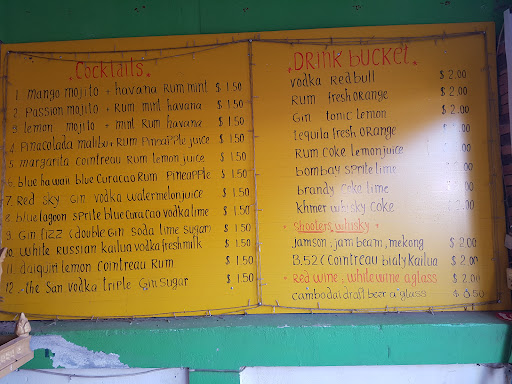 Cocktails
1. mango mojito + havana Rum mint $ 1.50
2. Passion mojito + Rum mint havana $ 1.50
3. lemon mojito + mint Rum havana $ 1.50
4. Pinacolada malibu + Rum Pineapple juice $ 1.50
5. margarita cointreau Rum lemon juice $ 1.50
6. blue hawaii blue Curacao Rum Pineapple $ 1.50
7. Red sky Gin vodka watermelon juice $ 1.50
8. blue lagoon sprite blue curacao vodka lime $ 1.50
9. Gin fizz (double Gin soda lime sugar) $ 1.50
10. White Russian kailua vodka fresh milk $ 1.50
11. daiquiri lemon cointreau Rum $ 1.50
12. the San vodka triple Gin sugar $ 1.50
DRINK bucket
vodka Redbull $ 2.00
Rum fresh orange $ 2.00
Gin tonic lemon $ 2.00
Tequila fresh orange $ 2.00
Rum coke lemon juice $ 2.00
bombay sprite lime $ 2.00
brandy coke lime $ 2.00
khmer whisky coke $ 2.00
shooters whisky
Jamson, jam beam, mekong $ 2.00
B.52 ( cointreau bialy kailua $ 2.00
Red wine, white wine a glass $ 2.00
cambodai draft beer a glass $ 0.50